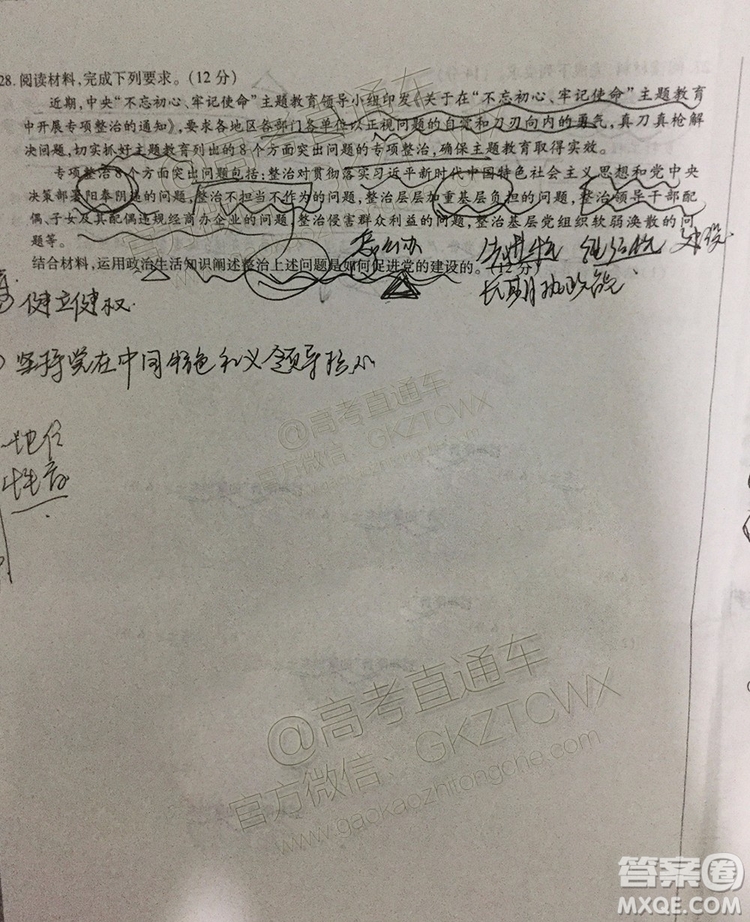 28. 阅读材料,完成下列要求。(12 分)
近期,中央“不忘初心、牢记使命”主题教育领导小组印发《关于在“不忘初心、牢记使命”主题教育
中开展专项整治的通知》,要求各地区各部门各单位以正视问题的自觉和刀刃向内的勇气,真刀真枪解
决问题,切实抓好主题教育列出的8个方面突出问题的专项整治,确保主题教育取得实效。
专项整治8个方面突出问题包括:整治对贯彻落实习近平新时代中国特色社会主义思想和党中央
决策部署阳奉阴违的问题,整治不担当不作为的问题,整治层层加重基层负担的问题,整治领导干部配
偶、子女及其配偶违规经商办企业的问题,整治侵害群众利益的问题,整治基层党组织软弱涣散的问
题等。
结合材料,运用政治生活知识阐述整治上述问题是如何促进党的建设的。(12 分)
怎么办 先进性 纯洁性 建设
长期执政能
健立健权
坚持党在中国特色 领导核心
地位
性意
@高考直通车
官方微信:GKZTCWX
@高考直通车
官方微信:GKZTCWX
www.gaokaozhitongche.com
答案圈
MXQE.COM